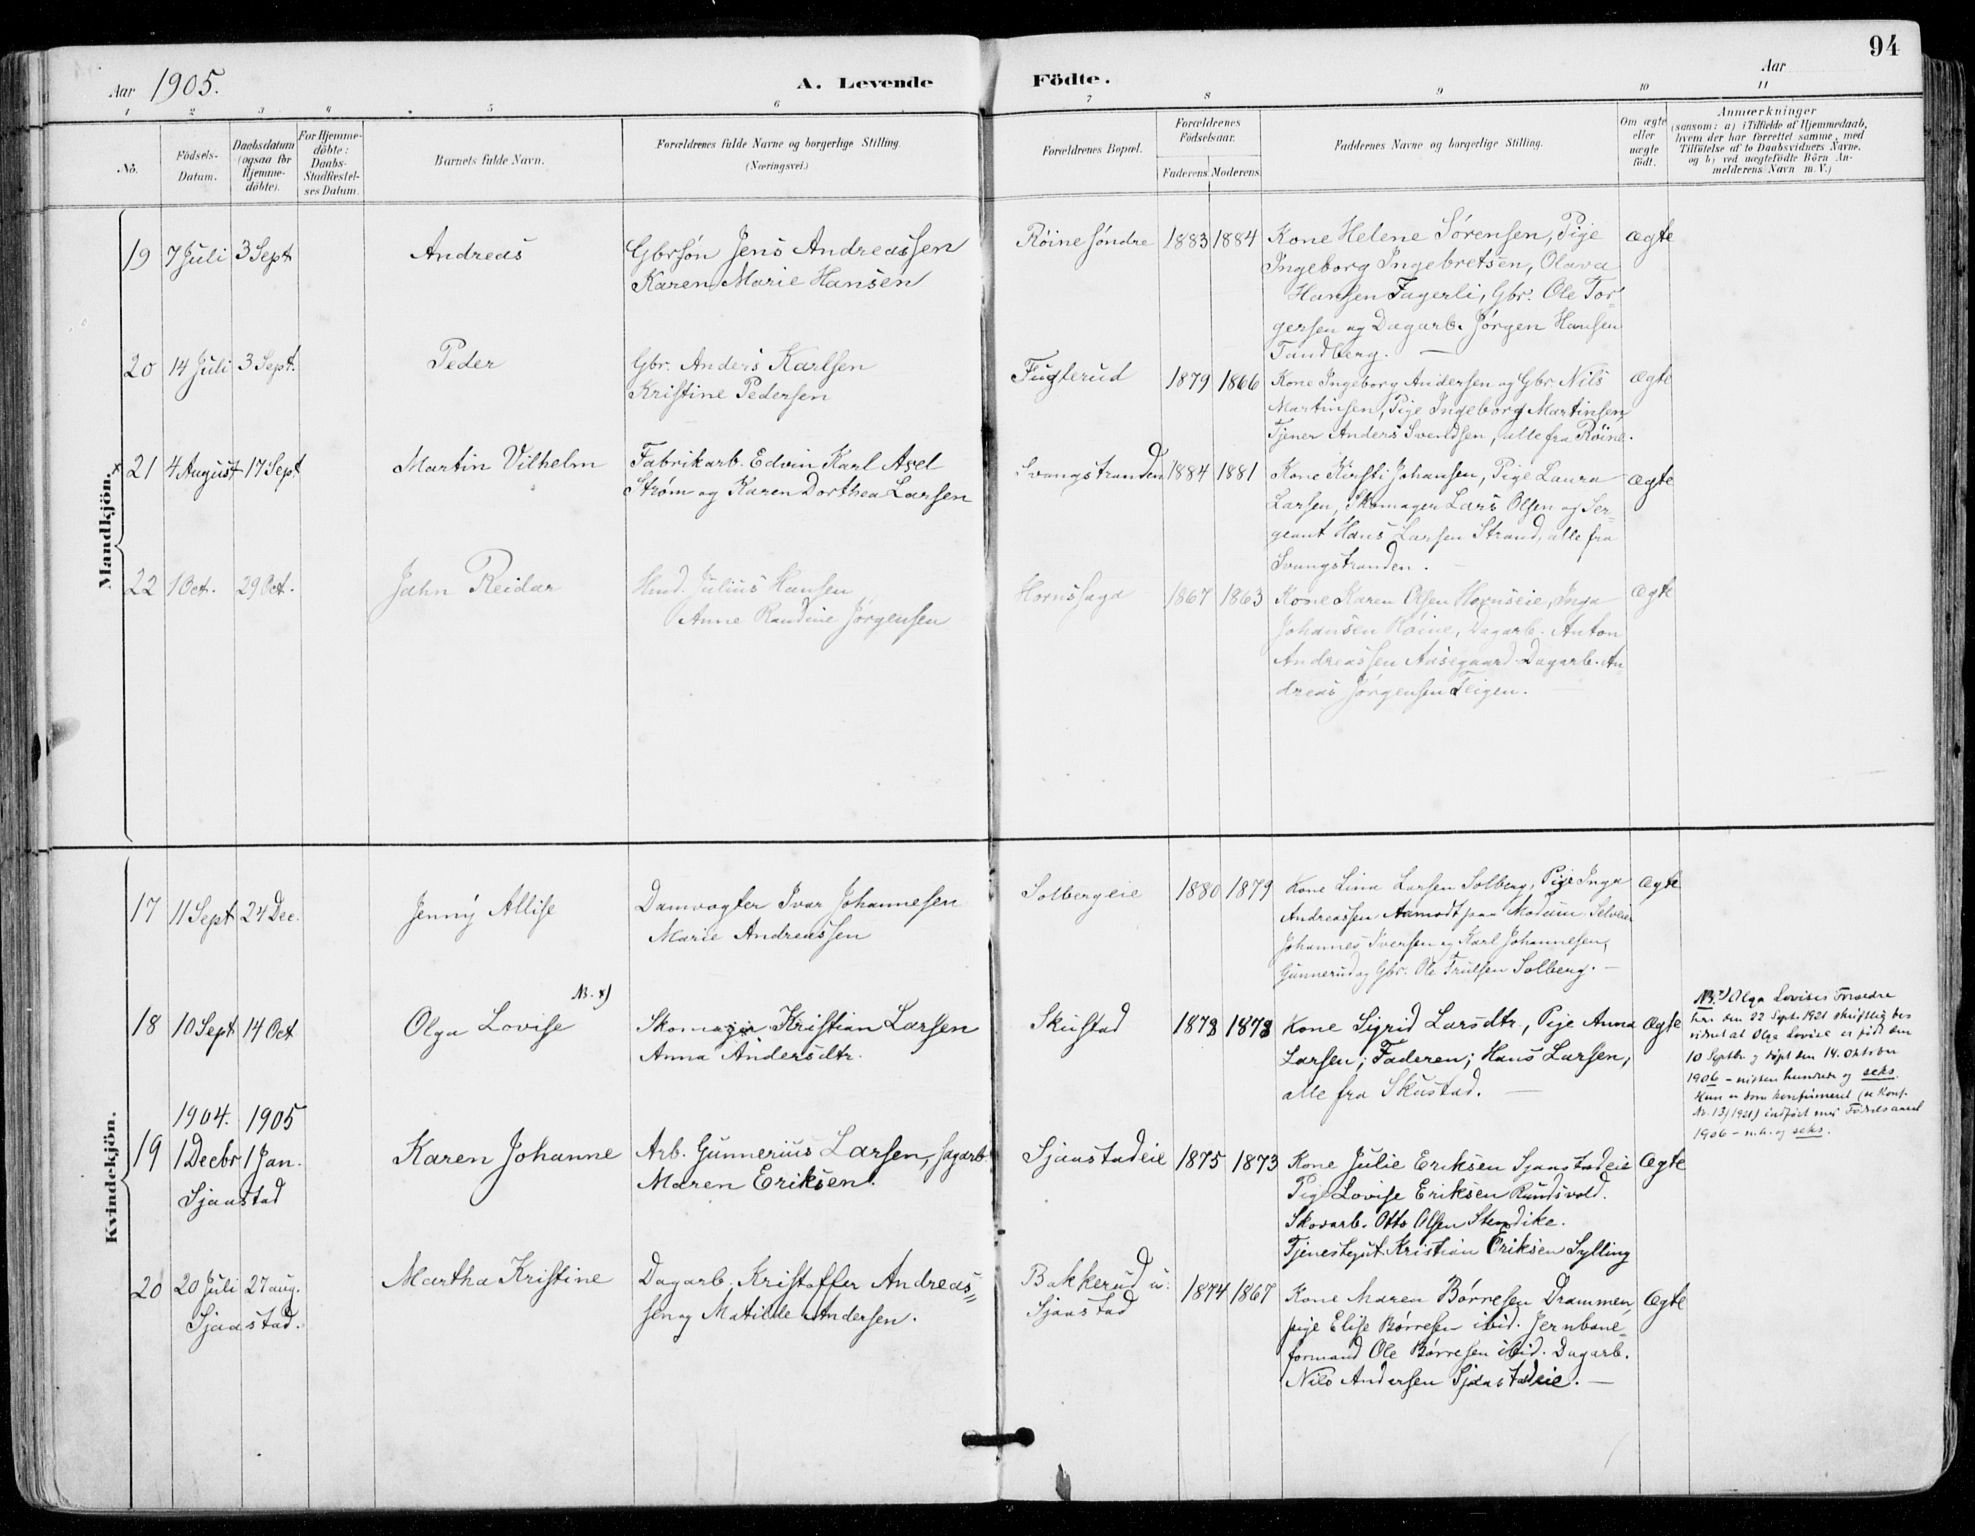 94
Aar 1905.
A. Levende Födte.
Aar
1 2 3 4 5 6 7 8 9 10 11
No.
Födsels-
Datum.
Daabsdatum
(ogsaa for
Hjemme-
döbte).
For Hjemme-
döbte:
Daabs-
Stadfæstel-
ses Datum.
Barnets fulde Navn.
Forældrenes fulde Navne og borgerlige Stilling.
(Næringsvei.)
Forældrenes Bopæl.
Forældrenes
Födselsaar.
Faderens. Moderens.
Faddernes Navne og borgerlige Stilling.
Om ægte
eller
uægte
födt.
Anmærkninger
(saasom: a) i Tilfælde af Hjemmedaab,
hvem der har forrettet samme, med
Tilföielse af to Daabsvidners Navne,
og b) ved uægtefödte Börn An-
melderens Navn m. V.)
Mandkjön.
19 7 Juli 3 Sept
Andreas
Gbrsøn Jens Andreassen
Karen Marie Hansen
Røine søndre
1883 1884
Kone Helene Sørensen, Pige
Ingeborg Ingebretsen, Olava
Hansen Fagerli, Gbr. Ole Tor-
gersen og Dagarb. Jørgen Hansen
Tandberg. —
ægte
20 14 Juli 3 Sept.
Peder
Gbr. Anders Karlsen
Kristine Pedersen
Fugterud
1879 1866
Kone Ingeborg Andersen og Gbr. Nils
Martinsen, Pige Ingeborg Martinsen
Tjener Anders Svendsen, alle fra Røine.
ægte
x 21 4 August 17 Sept
Martin Vilhelm
Fabrikarb. Edvin Karl Axel
Strøm og Karen Dorthea Larsen
Svangstranden
1884 1881
Kone Kirsti Johansen, Pige Laura
Larsen, Skomager Lars Olsen og Ser-
geant Hans Larsen Strand, alle fra
Svangstranden.
ægte
22 1 Oct. 29 Oct.
Jahn Reidar
Hmd. Julius Hansen
Anne Randine Jørgensen
Hornssaga
1867 1863
Kone Karen Olsen Hornseie, Inga
Johansen Røine, Dagarb. Anton
Andreassen Aasegaard Dagarb. An-
dreas Jørgensen Teigen. —
ægte
Kvindekjön.
17 11 Sept 24 Dec.
Jenny Allise
Damvogter Ivar Johannesen
Marie Andreassen
Solbergeie
1880 1879
Kone Lina Larsen Solberg, Pige Inga
Andreassen Aamodt paa Modum Selveier
Johannes Iversen og Karl Johannesen,
Gunnerud og Gbr. Ole Trulsen Solberg. —
ægte
18 10 Sept 14 Oct
NB. x)
Olga Lovise
Skomager Kristian Larsen
Anna Andersdtr.
Skustad
1878 1878
Kone Sigrid Larsdtr., Pige Anna
Larsen; Faderen; Hans Larsen,
alle fra Skustad. —
ægte
NB. x) Olga Lovises Forældre
har den 22 Sept. 1921 skriftlig bev
vidnet at Olga Lovise er født den
10 Septbr. og døpt den 14. Oktober
1906 – nitten hundrede og seks.
Hun er som konfirmeret (se Konf.
Nr. 13/1921) indført med Fødselsaaret
1906 – n.h. og seks.
1904. 1905
19 1 Decbr 1 Jan.
Sjaastad
Karen Johanne
Arb. Gunnerius Larsen, sagarb
Maren Eriksen.
Sjaastadeie
1875 1873
Kone Julie Eriksen Sjaastadeie
Pige Lovise Eriksen Rundsvold.
Skovarb. Otto Olsen Stendike.
Tjenestegut Kristian Eriksen Sylling
ægte
20 20 Juli 27 aug.
Sjaastad.
Martha Kristine
Dagarb. Kristoffer Andreas-
sen og Matilde Andersen.
Bakkerud u.
Sjaastad
1874 1867
Kone Maren Børresen Drammen,
pige Elise Børresen ibid. Jernbane-
formand Ole Børresen ibid. Dagarb.
Nils Andersen Sjaastadeie. —
ægte